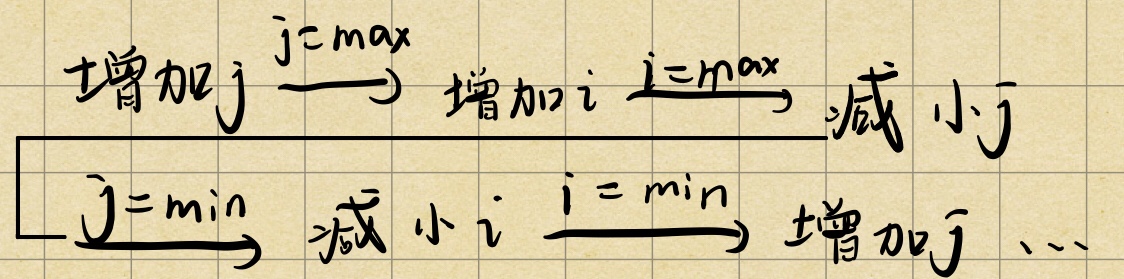 增加j j=max 增加i i=max 减小j
j=min 减小i i=min 增加j ...